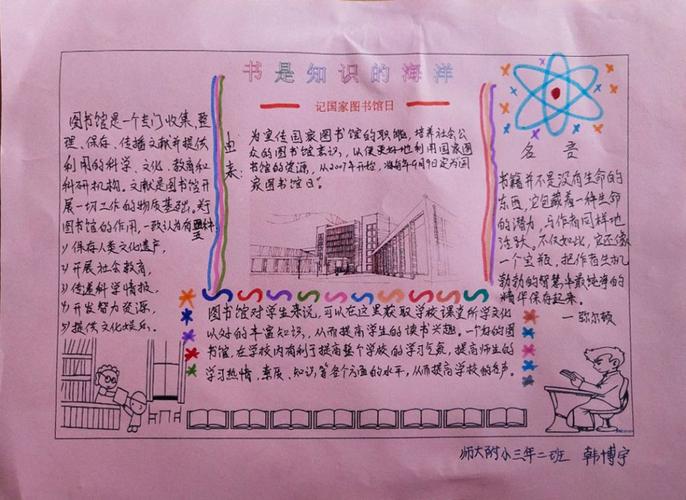 书是知识的海洋
记国家图书馆日
图书馆是一个专门收集、整
理、保存、传播文献并提供
利用的科学、文化、教育和
科研机构。文献是图书馆开
展一切工作的物质基础。关于
图书馆的作用,一致认为有四种:
1) 保存人类文化遗产,
2) 开展社会教育,
3) 传递科学情报,
4) 开发智力资源,
5) 提供文化娱乐。
由来:
为宣传国家图书馆的职能,培养社会公
众的图书馆意识,以便更好地利用国家图
书馆的资源,从2009年开始,将每年9月9日定为国
家图书馆日。
名言
书籍并不是没有生命的
东西,它包藏着一种生命
的潜力,与作者同样地
活跃。不仅如此,它还像
一个宝瓶,把作者生机
勃勃的智慧中最纯净的
精华保存起来。
—弥尔顿
图书馆对学生来说,可以在这里获取学校课堂所学文化
以外的丰富知识,从而提高学生的读书兴趣。一个好的图
书馆,在学校内有利于提高整个学校的学习气氛,提高师生的
学习热情、素质、知识,等各个方面的水平,从而提高学校的名声。
师大附小三年二班 韩博宇